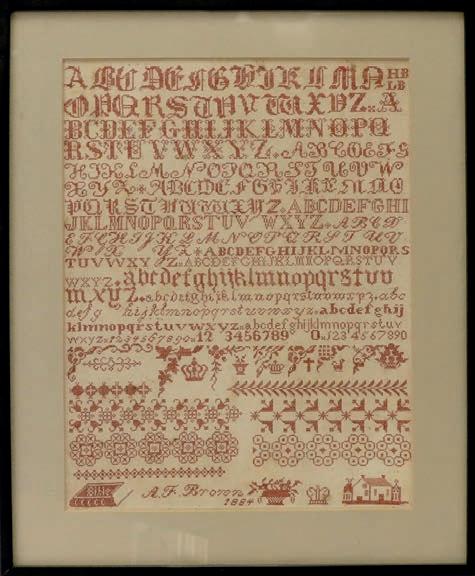 ABCDEFGHIJKLMN HB
OPQRSTUVWXYZ A LB
BCDEFGHIJKLMNOPQ
RSTUVWXYZ ABCDEFG
HIJKLMNOPQRSTUVW
XYZ ABCDEFGHIKLMNO
PQRSTUVWXYZ ABCDEFGHI
JKLMNOPQRSTUV WXYZ ABCD
EFGHIJKLMNOPQRSTUV
WX YZ ABCDEFGHIJKLMNOPQRS
TUVWXYZ ABCDEFGHIJKLMNOPQRSTUV
WXYZ abcdefghijklmnopqrstuv
wxyz abcdefghijklmnopqrstuvwxyz abc
defg hijklmnopqrstuvwxyz abcdefghij
klmnopqrstuvwxyz abcdefghijklmnopqrstuv
wxyz 1234567890 12 3456789 0 1234567890
Bible A.F. Brown
1884